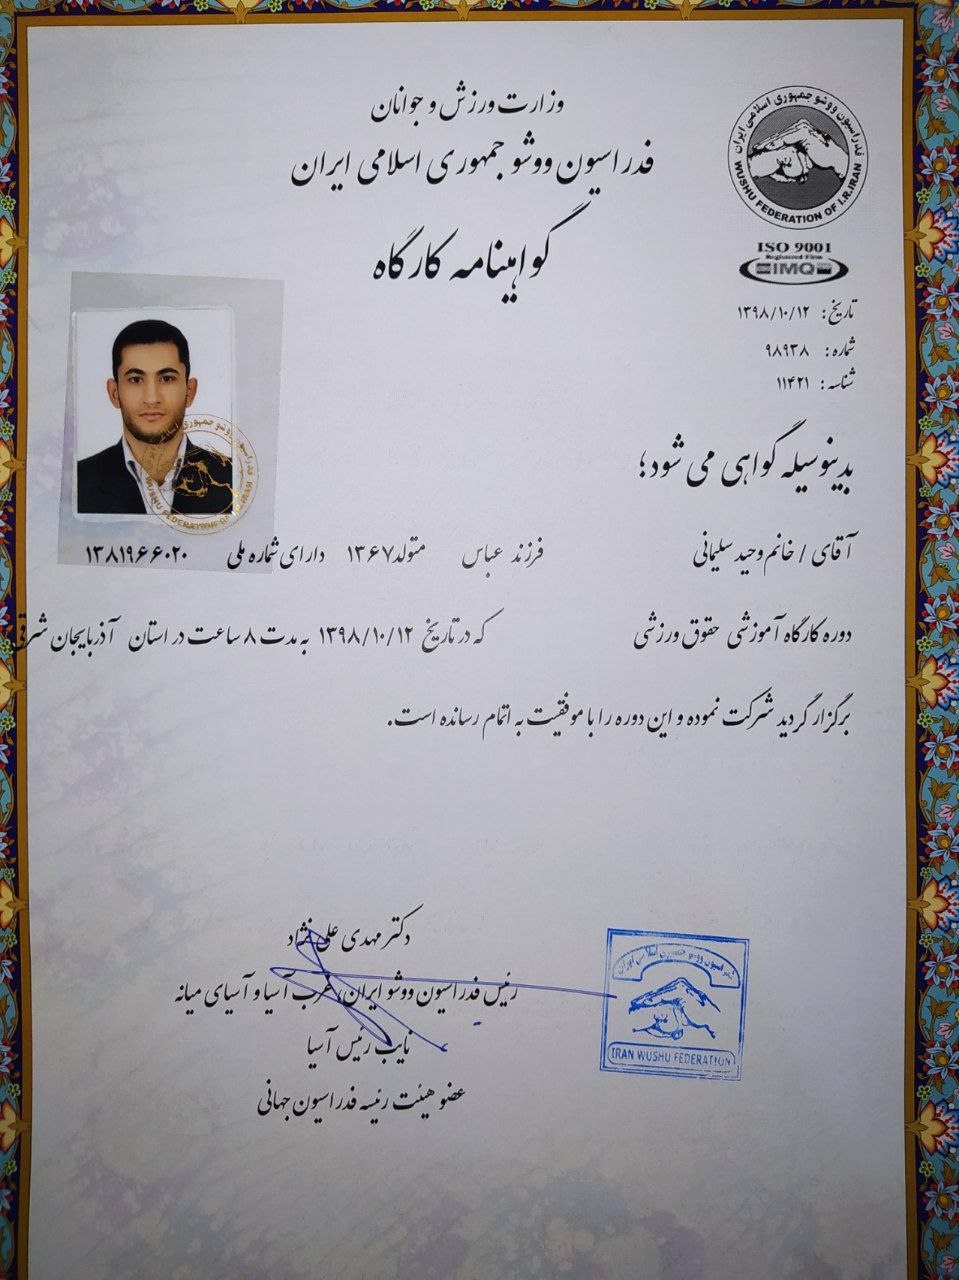 وزارت ورزش و جوانان
فدراسیون ووشو جمهوری اسلامی ایران
گواهینامه کارگاه
فدراسیون ووشو جمهوری اسلامی ایران
WUSHU FEDERATION OF I.R.IRAN
ISO 9001
Registered Firm
IMQ
تاریخ: ۱۳۹۸/۱۰/۱۲
شماره: ۹۸۹۳۸
شناسه: ۱۱۴۲۱
بدینوسیله گواهی می شود؛
آقای / خانم وحید سلیمانی فرزند عباس متولد ۱۳۶۷ دارای شماره ملی ۱۳۸۱۹۶۶۰۲۰
دوره کارگاه آموزشی حقوق ورزشی که در تاریخ ۱۳۹۸/۱۰/۱۲ به مدت ۸ ساعت در استان آذربایجان شرقی
برگزار گردید شرکت نموده و این دوره را با موفقیت به اتمام رسانده است.
دکتر مهدی علی نژاد
رئیس فدراسیون ووشو ایران، غرب آسیا و آسیای میانه
نایب رئیس آسیا
عضو هیئت رئیسه فدراسیون جهانی
فدراسیون ووشو جمهوری اسلامی ایران
IRAN WUSHU FEDERATION
WUSHU FEDERATION OF I.R.IRAN